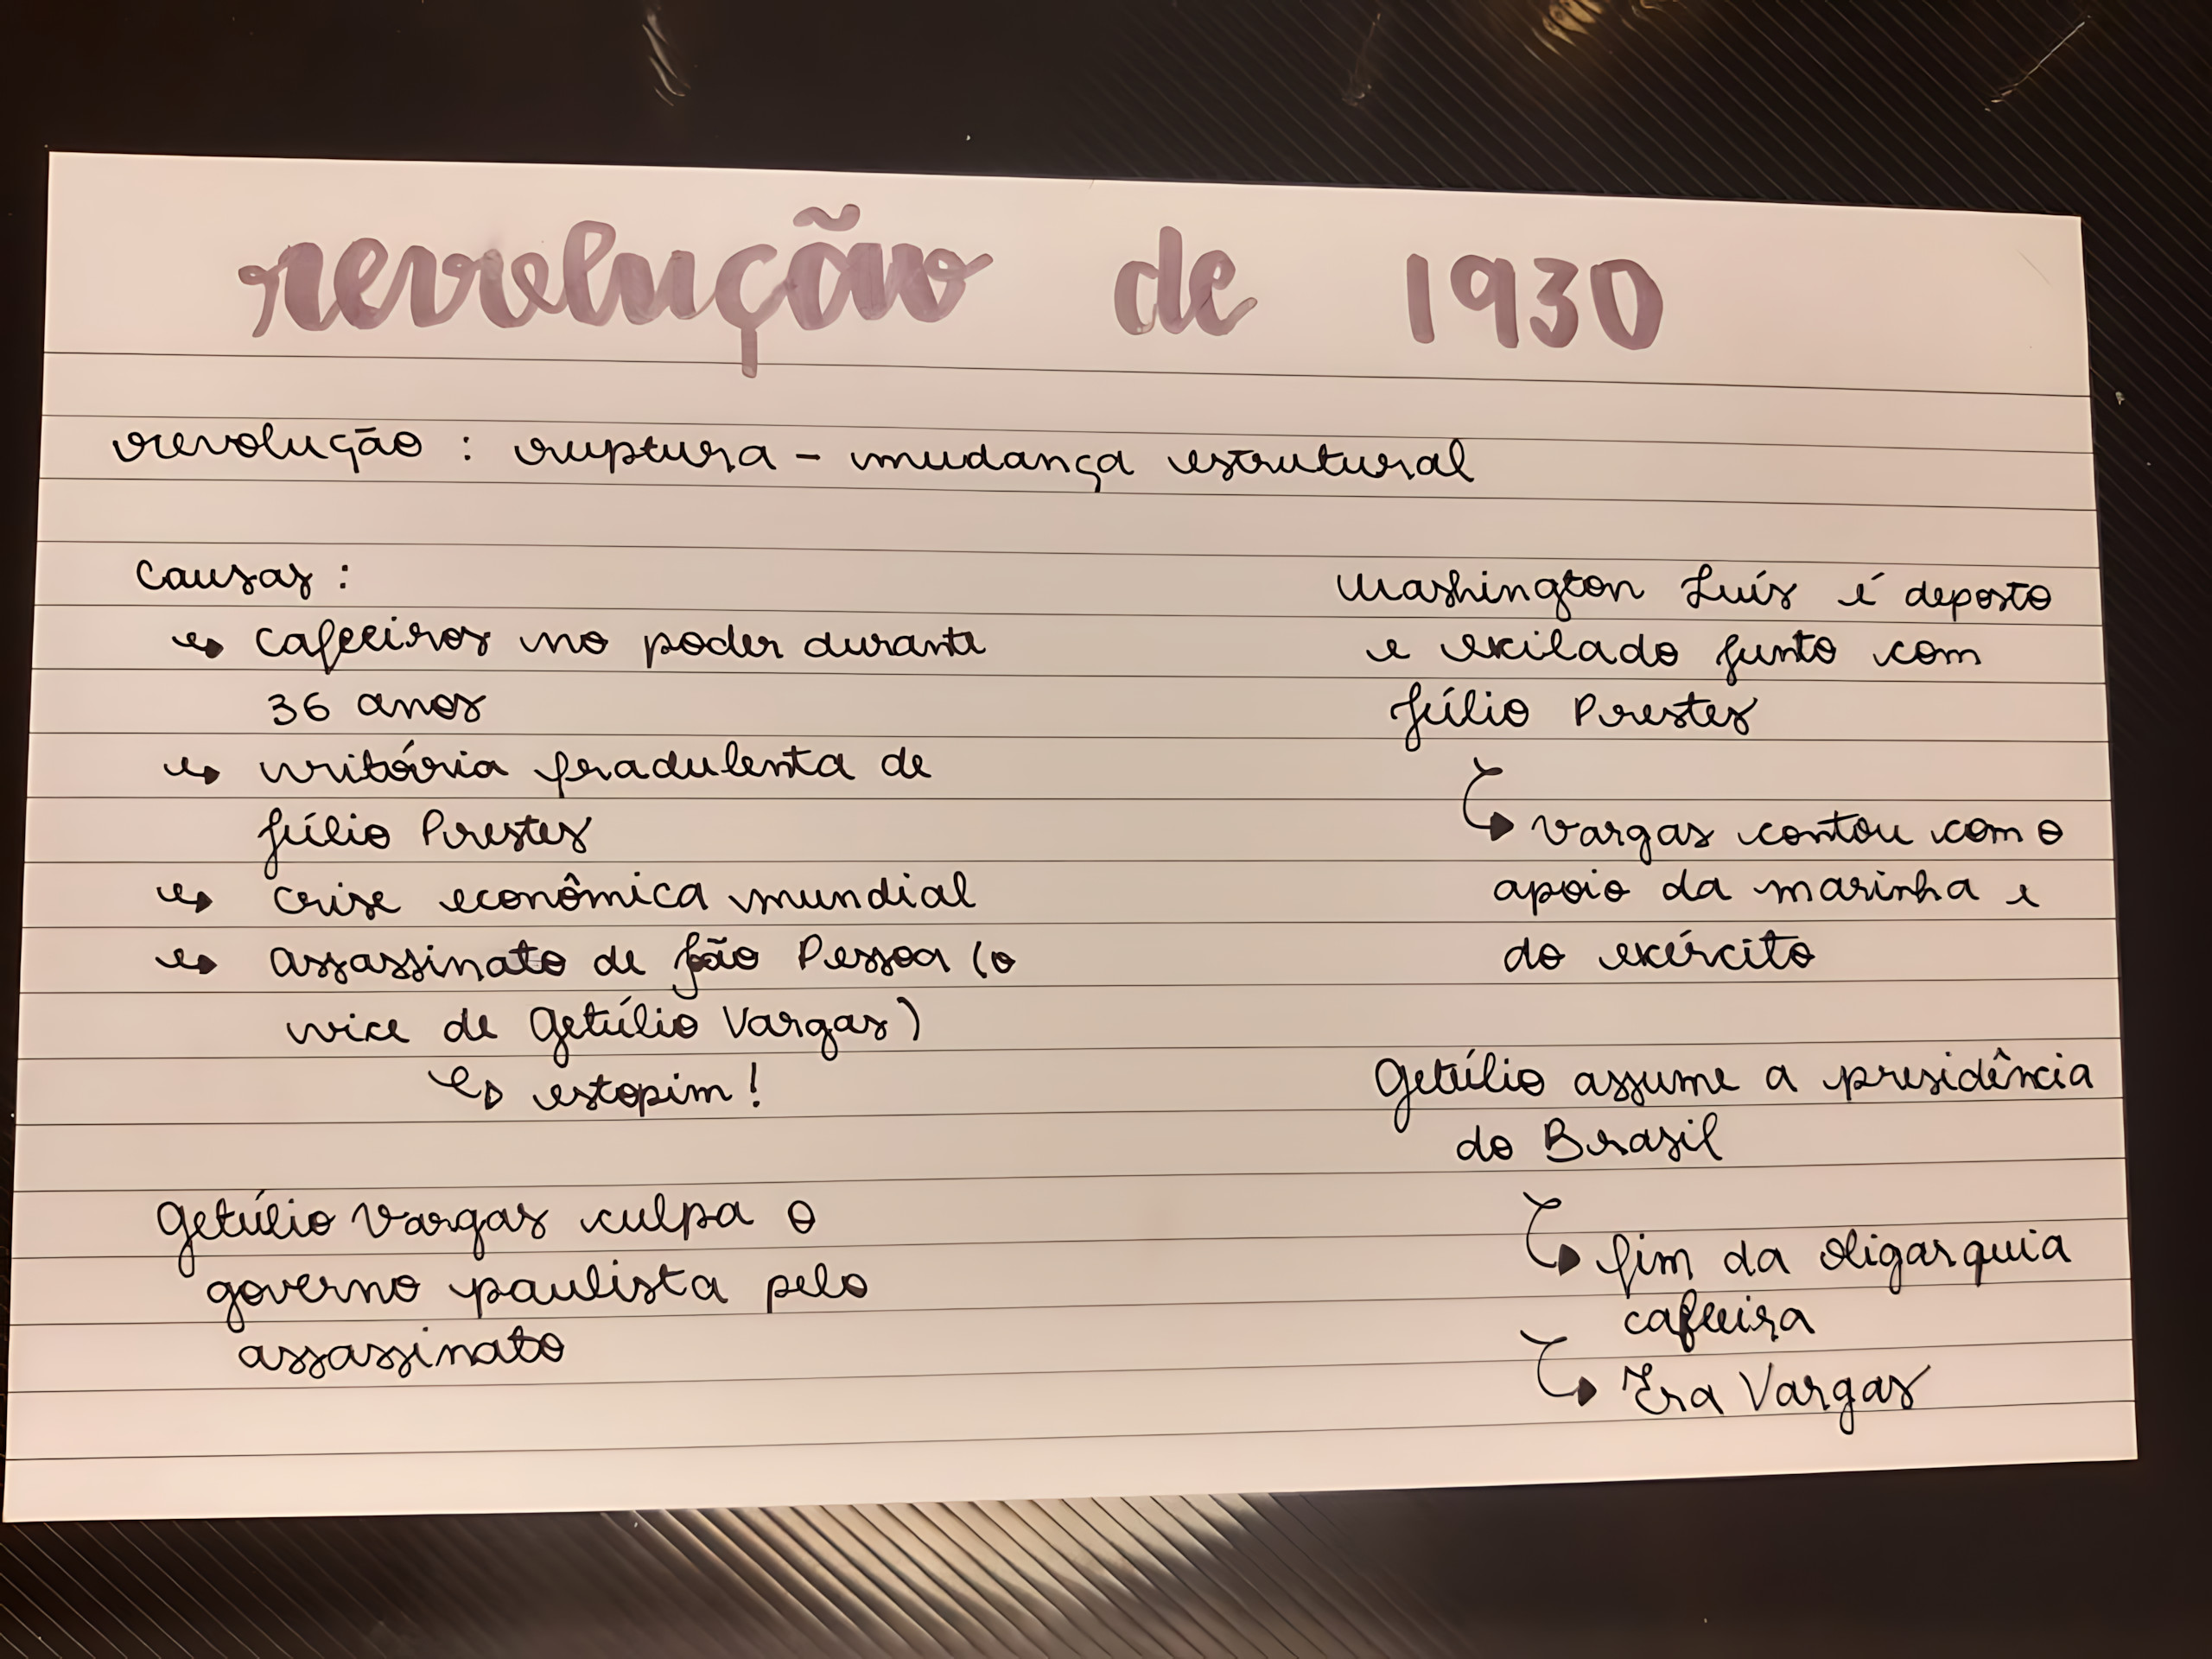 revolução de 1930
revolução : ruptura - mudança estrutural
causas :
↪ cafeeiros no poder durante
36 anos
↪ vitória fradulenta de
Júlio Prestes
↪ crise econômica mundial
↪ assassinato de João Pessoa (o
vice de Getúlio Vargas)
↪ estopim!
Getúlio Vargas culpa o
governo paulista pelo
assassinato
Washington Luís é deposto
e exilado junto com
Júlio Prestes
↪ Vargas contou com o
apoio da marinha e
do exército
Getúlio assume a presidência
do Brasil
↪ fim da oligarquia
cafeeira
↪ Era Vargas